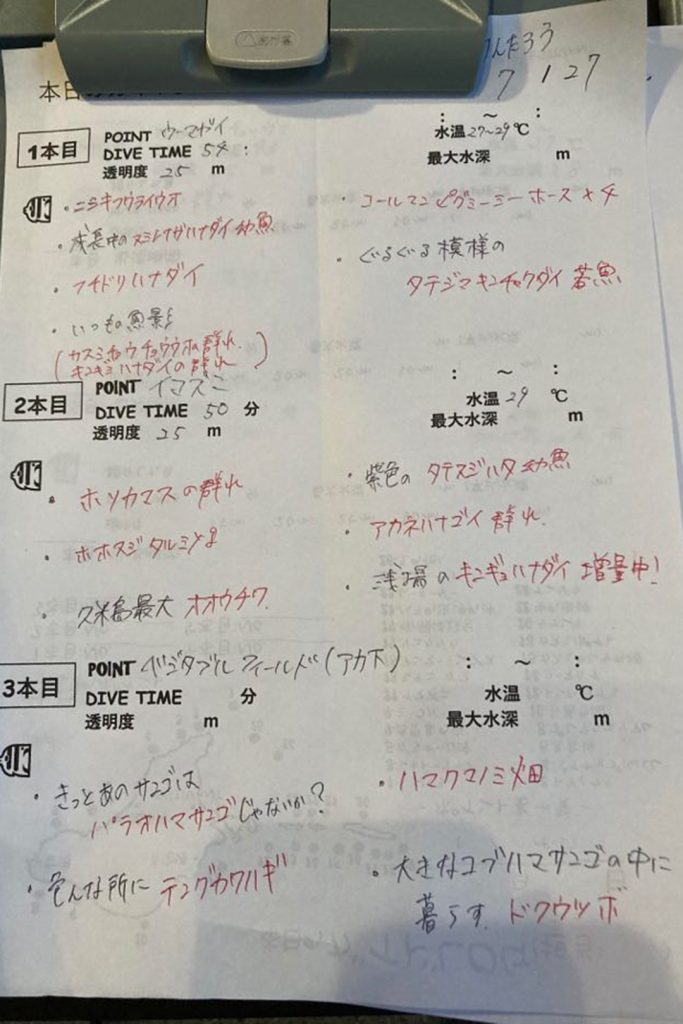 本日
んたろう
7 / 27
1本目
POINT ウーマガイ
DIVE TIME 54 :
透明度 25 m
: ~ :
水温 27~29℃
最大水深 m
・ニラミキフウライウオ
・成長中のスミレナガハナダイ幼魚
・フチドリハナダイ
・いつもの魚影!
(カスミチョウチョウウオの群れ
キンギョハナダイの群れ)
・コールマンピグミーシーホース×4
・ぐるぐる模様の
タテジマキンチャクダイ 若魚
2本目
POINT イマズニ
DIVE TIME 50 分
透明度 25 m
: ~ :
水温 29 ℃
最大水深 m
・ホソカマスの群れ
・ホホスジタルミyg
・久米島最大 オオウチワ
・紫色の タテスジハタ幼魚
・アカネハナゴイ 群れ
・浅場の キンギョハナダイ 増量中!
3本目
POINT ベジタブルフィールド(アカ下)
DIVE TIME 分
透明度 m
: ~ :
水温 ℃
最大水深 m
・きっとあのサンゴは
パラオハマサンゴじゃないか?
・色んな所に テングカワハギ
・ハマクマノミ畑
・大きなコブハマサンゴの中に
暮らす ドクウツボ